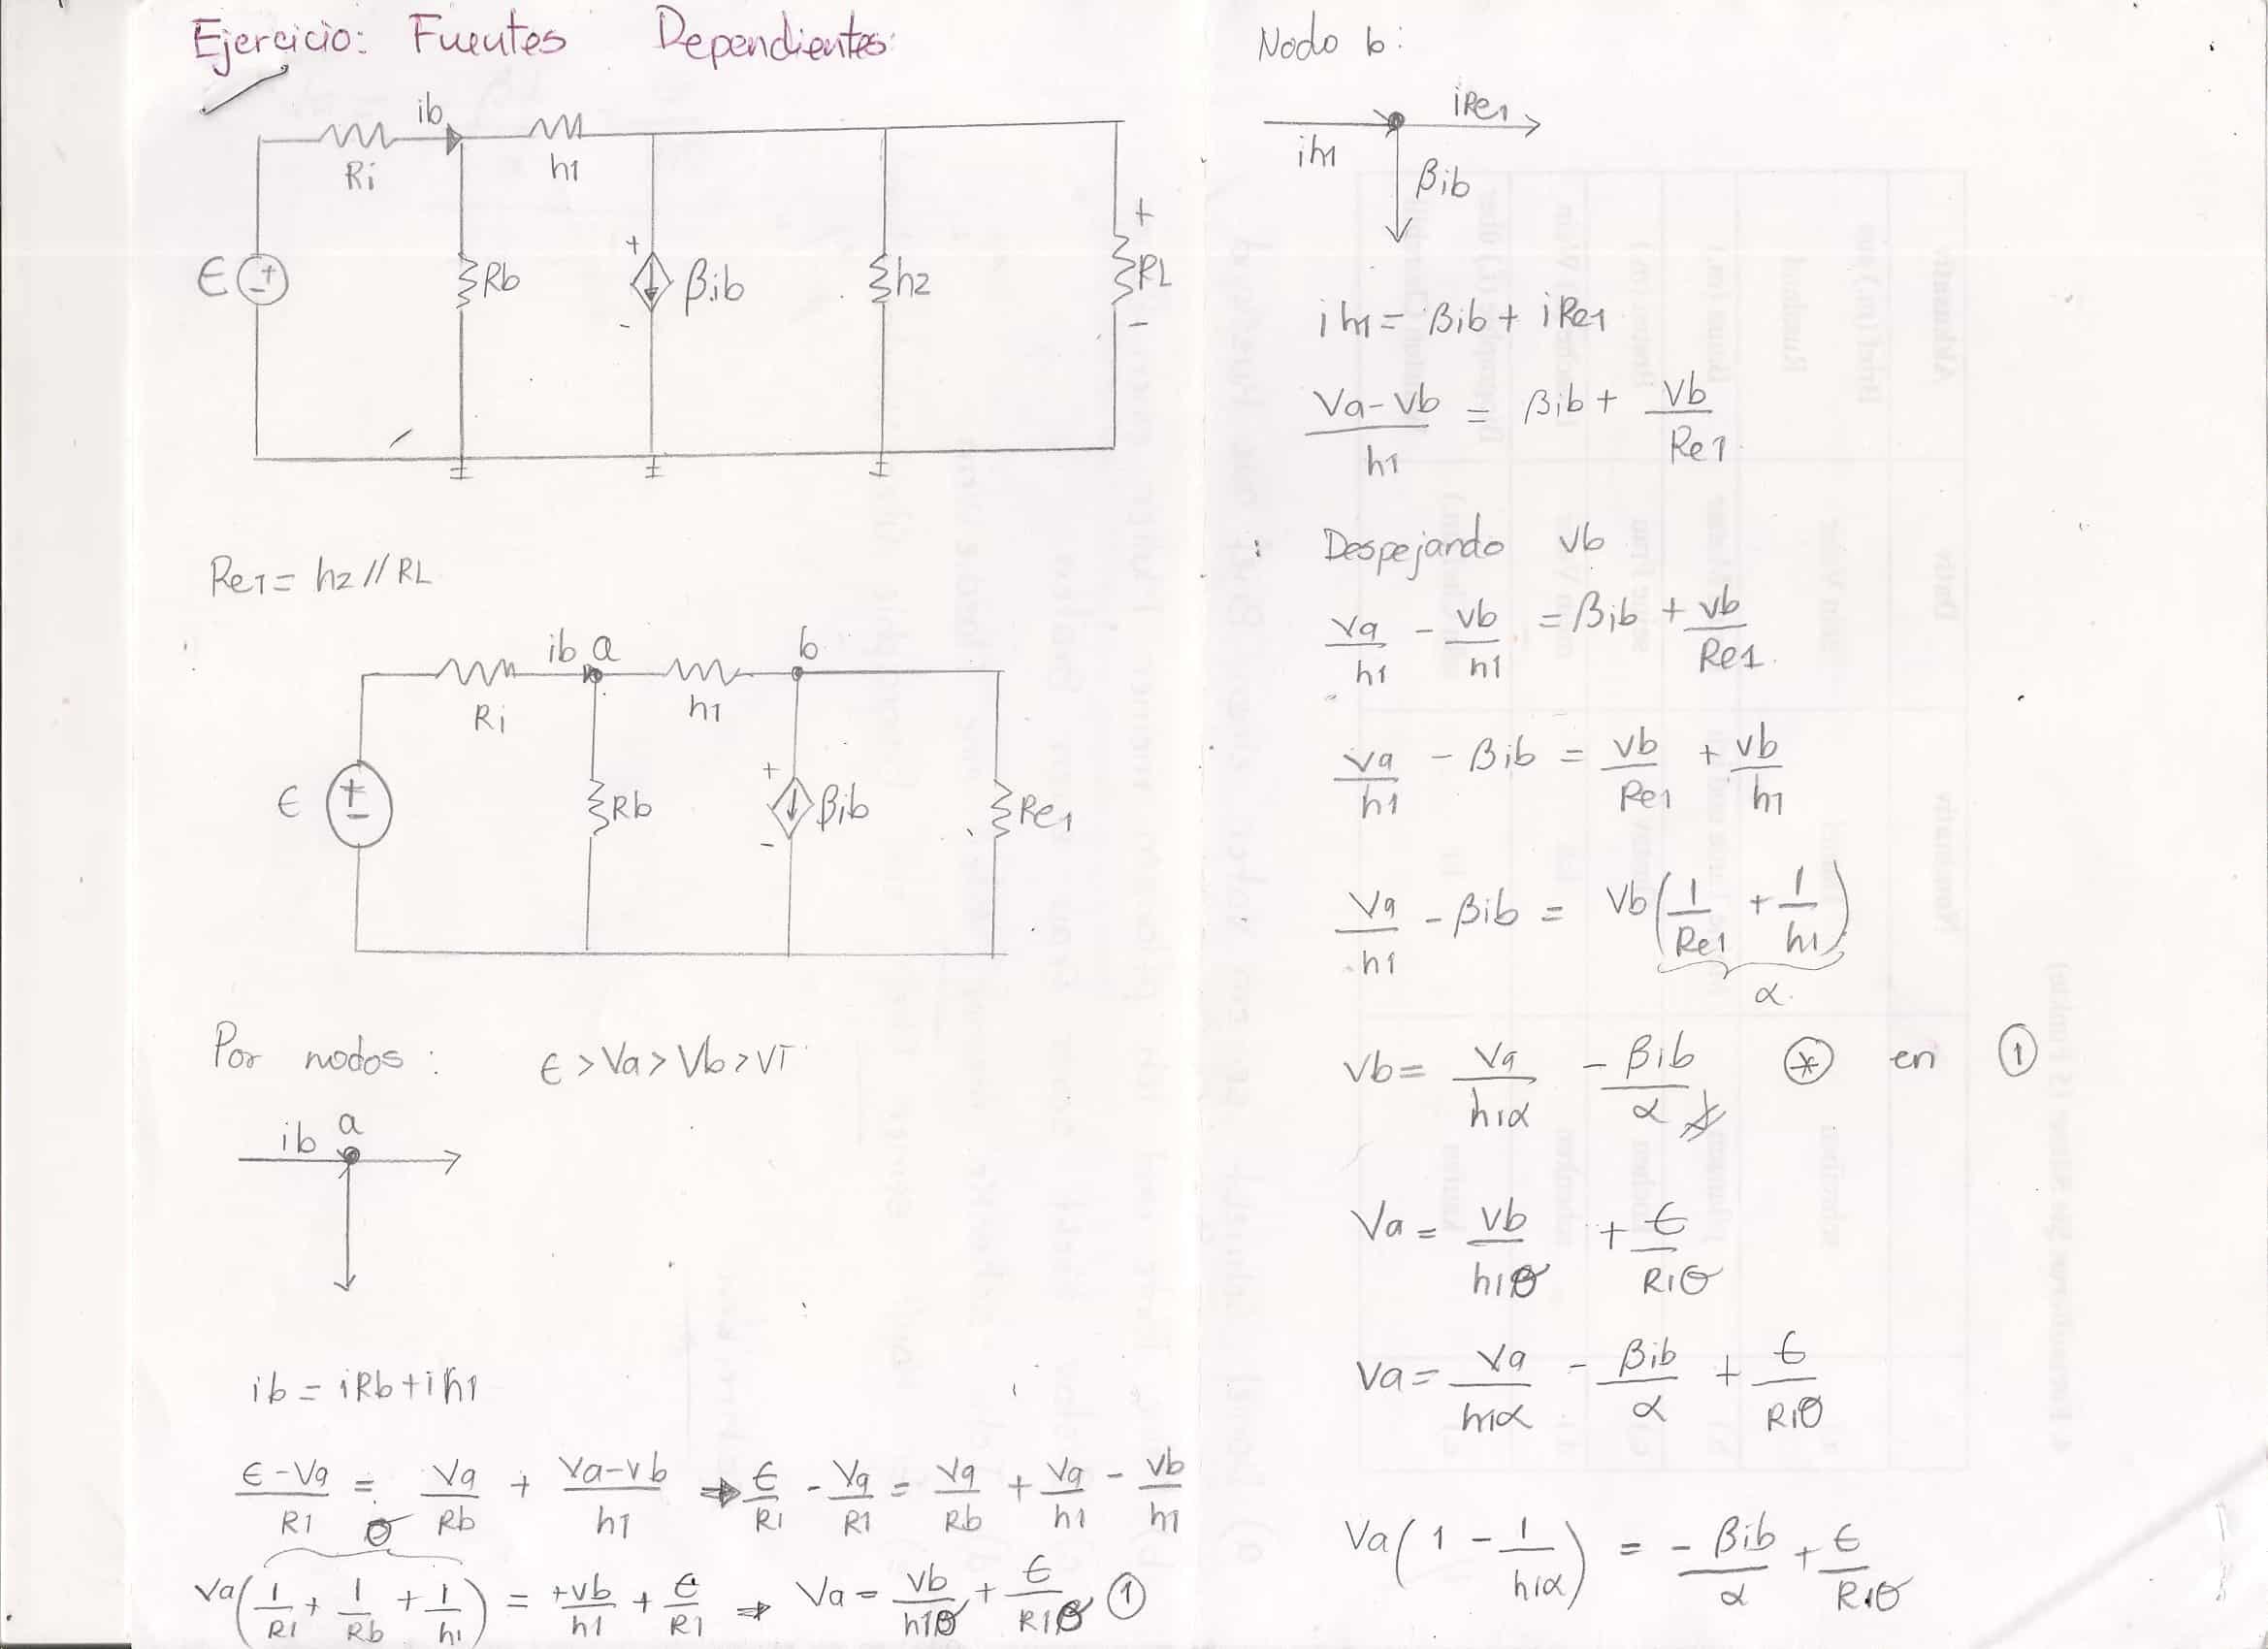 Ejercicio: Fuentes Dependientes:
ib
Ri
h1
+
-
ϵ
Rb
+
-
βib
h2
+
RL
-
Re1 = h2 // RL
ib a
b
Ri
h1
ϵ
+
-
Rb
+
-
βib
Re1
Por nodos: ϵ > Va > Vb > VT
ib a
ib = iRb + ih1
(ϵ - Va)/R1 = Va/Rb + (Va - vb)/h1 ⇒ ϵ/R1 - Va/R1 = Va/Rb + Va/h1 - Vb/h1
θ
Va(1/R1 + 1/Rb + 1/h1) = +vb/h1 + ϵ/R1 ⇒ Va = vb/h1θ + ϵ/R1θ ①
Nodo b:
iRe1
ih1
βib
ih1 = βib + iRe1
(Va - Vb)/h1 = βib + Vb/Re1
Despejando Vb
Va/h1 - Vb/h1 = βib + vb/Re1
Va/h1 - βib = vb/Re1 + vb/h1
Va/h1 - βib = Vb(1/Re1 + 1/h1)
α
Vb = Va/h1α - βib/α ⊛ en ①
Va = vb/h1θ + ϵ/R1θ
Va = Va/h1α - βib/α + ϵ/R1θ
Va(1 - 1/h1α) = - βib/α + ϵ/R1θ